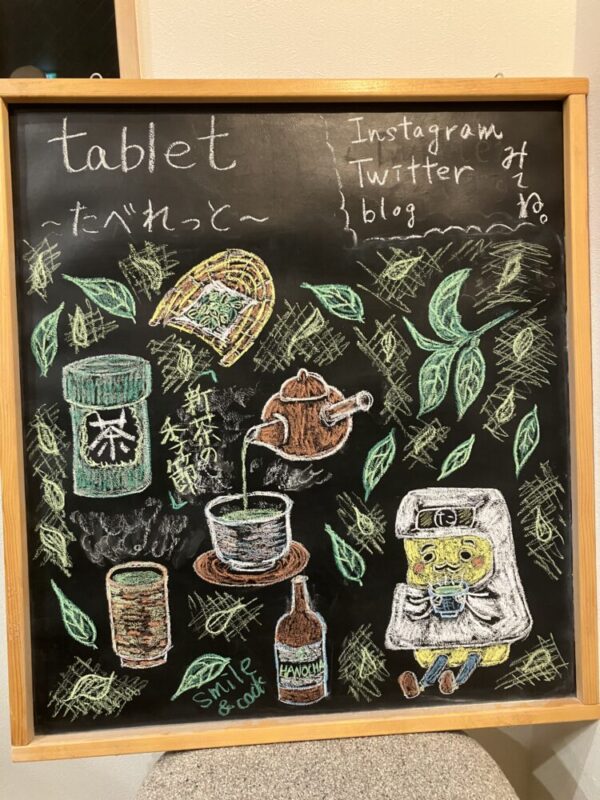 tablet
~たべれっと~
Instagram
Twitter
blog
みてね。
新茶の
季節
茶
た
HANOCHA
smile
& cook